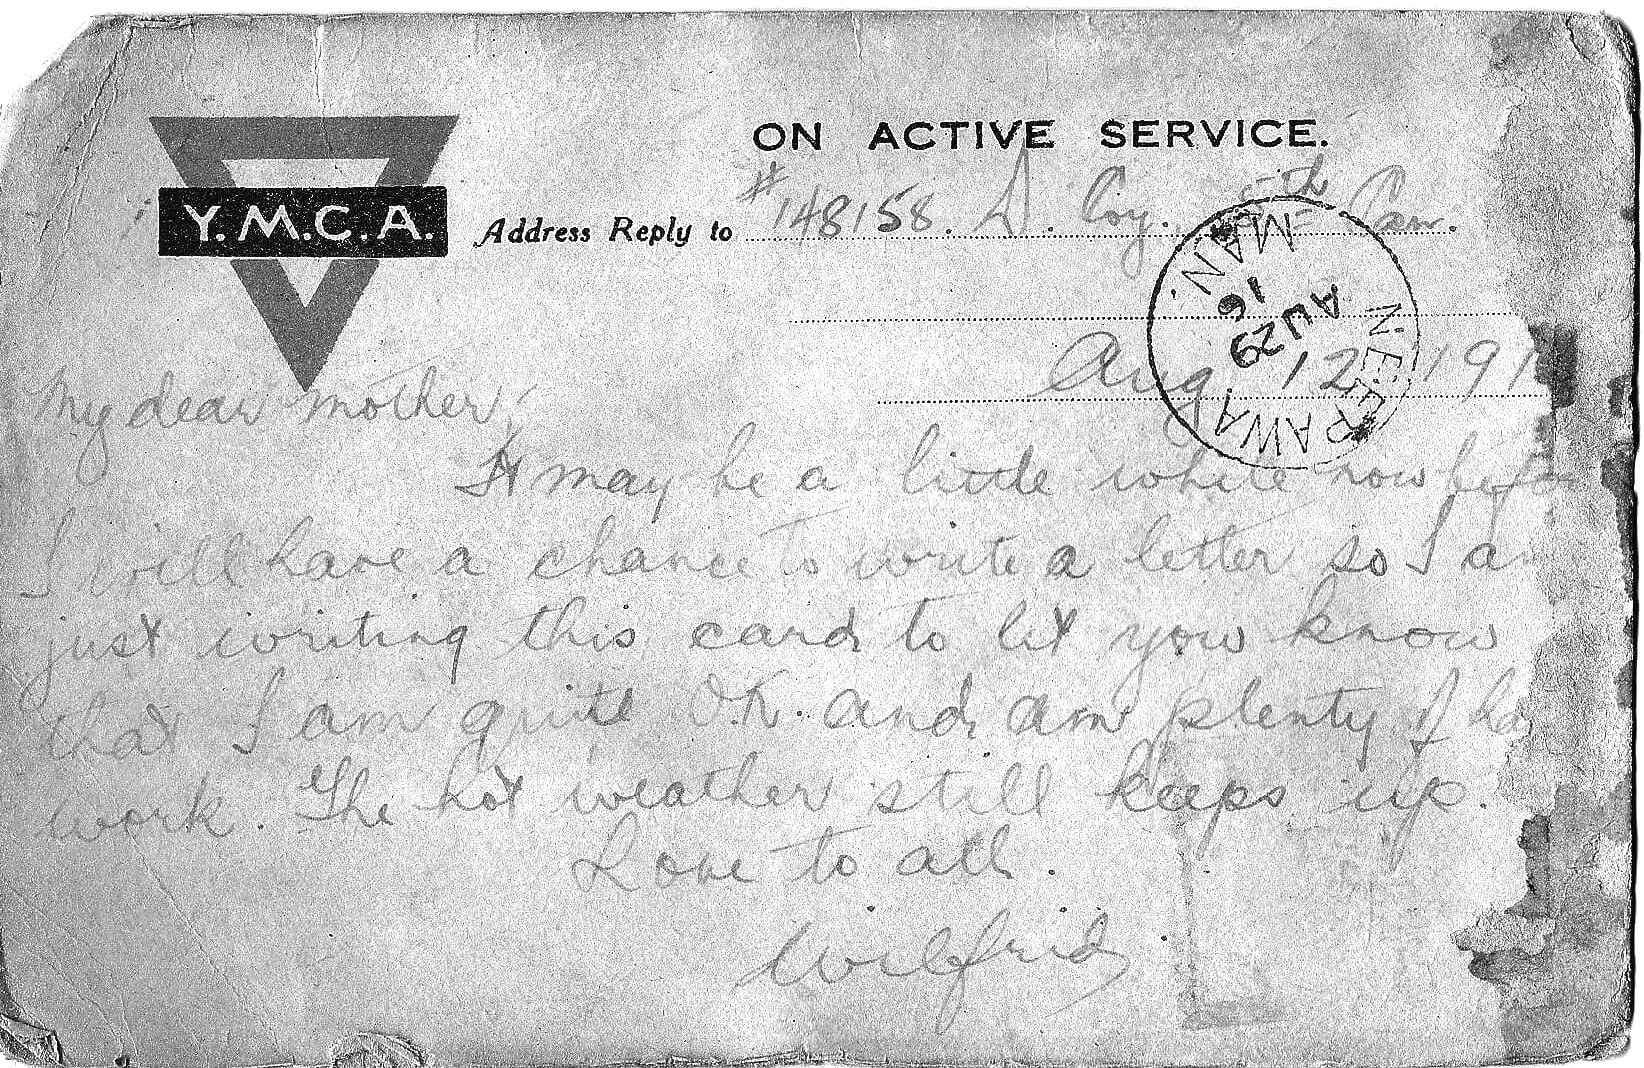 ON ACTIVE SERVICE.
Y.M.C.A.
Address Reply to #148158. D. Coy. 5th Can.
NEEPAWA MAN.
AU 29
16
Aug. 12 191
My dear mother,
It may be a little while now befo
I will have a chance to write a letter so I a
just writing this card to let you know
that I am quite O.K. and am plenty of ha
work. The hot weather still keeps up.
Love to all.
Wilfrid